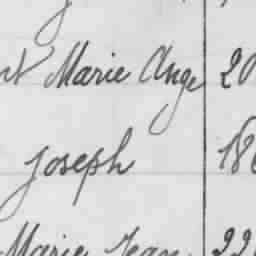 nt Marie Ange 20
Joseph 186
Marie Jean 22